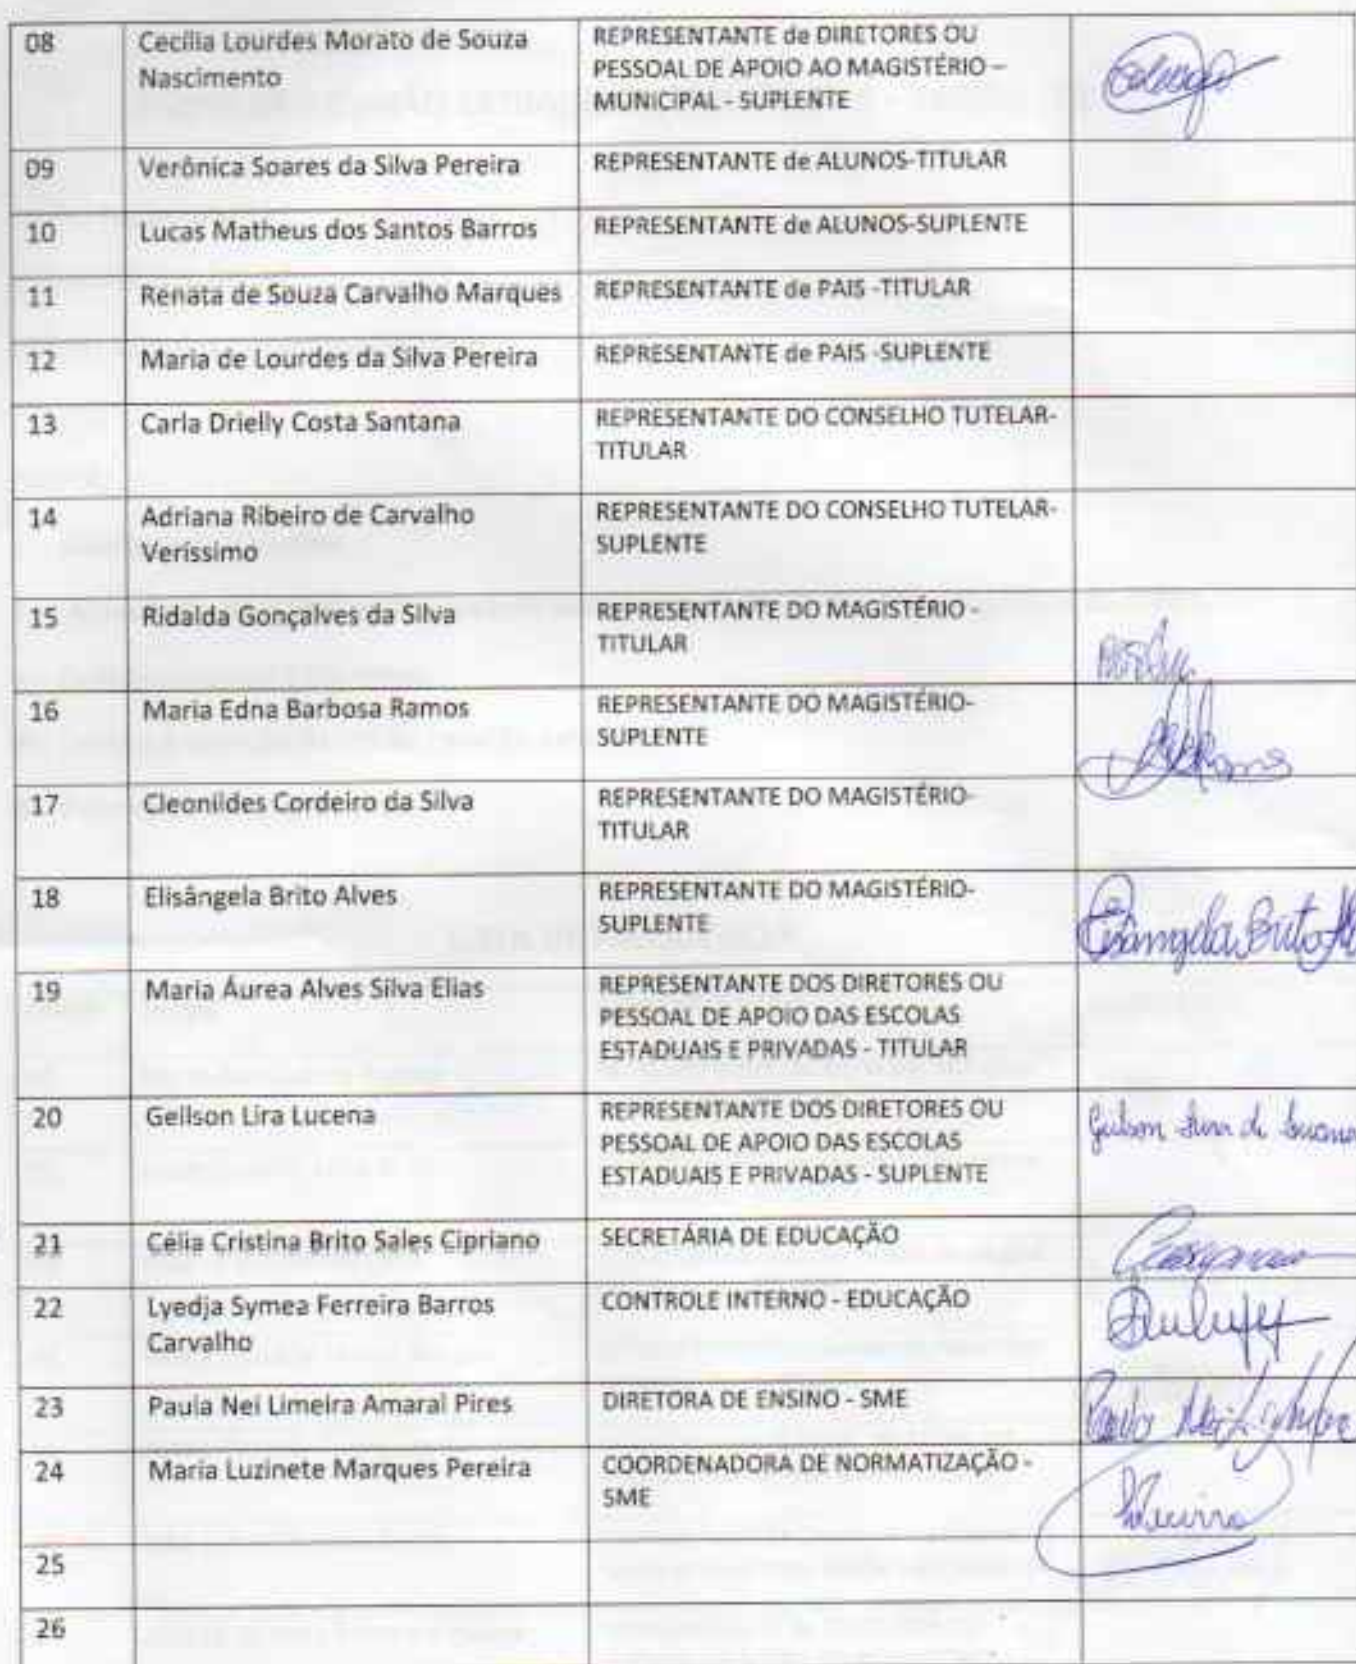 08
Cecília Lourdes Morato de Souza
Nascimento
REPRESENTANTE de DIRETORES OU
PESSOAL DE APOIO AO MAGISTÉRIO –
MUNICIPAL - SUPLENTE
09
Verônica Soares da Silva Pereira
REPRESENTANTE de ALUNOS-TITULAR
10
Lucas Matheus dos Santos Barros
REPRESENTANTE de ALUNOS-SUPLENTE
11
Renata de Souza Carvalho Marques
REPRESENTANTE de PAIS -TITULAR
12
Maria de Lourdes da Silva Pereira
REPRESENTANTE de PAIS -SUPLENTE
13
Carla Drielly Costa Santana
REPRESENTANTE DO CONSELHO TUTELAR-
TITULAR
14
Adriana Ribeiro de Carvalho
Veríssimo
REPRESENTANTE DO CONSELHO TUTELAR-
SUPLENTE
15
Ridalda Gonçalves da Silva
REPRESENTANTE DO MAGISTÉRIO -
TITULAR
16
Maria Edna Barbosa Ramos
REPRESENTANTE DO MAGISTÉRIO-
SUPLENTE
17
Cleonildes Cordeiro da Silva
REPRESENTANTE DO MAGISTÉRIO-
TITULAR
18
Elisângela Brito Alves
REPRESENTANTE DO MAGISTÉRIO-
SUPLENTE
Elisangela Brito
19
Maria Áurea Alves Silva Elias
REPRESENTANTE DOS DIRETORES OU
PESSOAL DE APOIO DAS ESCOLAS
ESTADUAIS E PRIVADAS - TITULAR
20
Geilson Lira Lucena
REPRESENTANTE DOS DIRETORES OU
PESSOAL DE APOIO DAS ESCOLAS
ESTADUAIS E PRIVADAS - SUPLENTE
Geilson Lira de Lucena
21
Célia Cristina Brito Sales Cipriano
SECRETÁRIA DE EDUCAÇÃO
22
Lyedja Symea Ferreira Barros
Carvalho
CONTROLE INTERNO - EDUCAÇÃO
23
Paula Nei Limeira Amaral Pires
DIRETORA DE ENSINO - SME
24
Maria Luzinete Marques Pereira
COORDENADORA DE NORMATIZAÇÃO -
SME
25
26